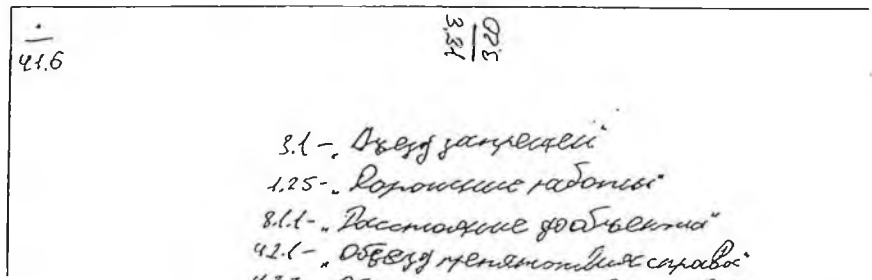 41.6
1.33
3.20
3.1 - „Въезд запрещен"
1.25 - „Дорожные работы"
8.1.1 - „Расстояние до объекта"
4.2.1 - „Объезд препятствия справа"